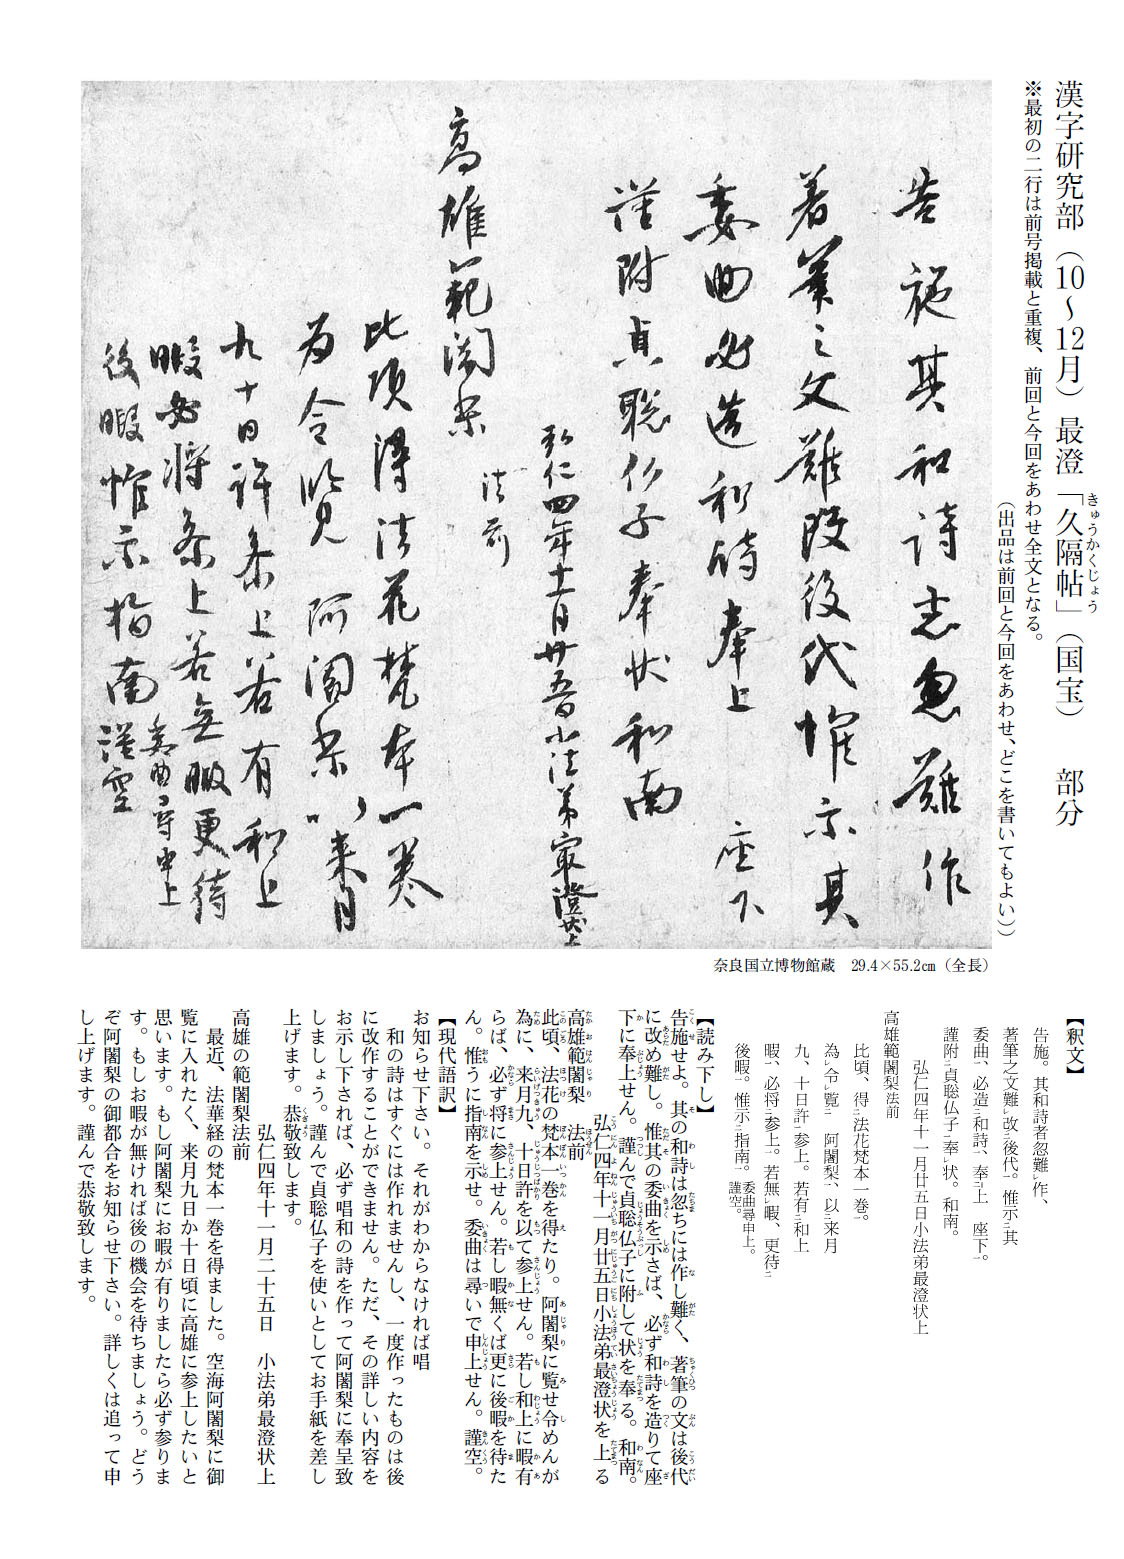 漢字研究部（10～12月）最澄「久隔帖」（国宝）　部分
きゅうかくじょう
※最初の二行は前号掲載と重複、前回と今回をあわせ全文となる。
（出品は前回と今回をあわせ、どこを書いてもよい）
告施其和詩者忽難作
著筆之文難改後代惟示其
委曲必造和詩奉上　座下
謹附貞聡仏子奉状和南
弘仁四年十一月廿五日小法弟最澄状上
高雄範闍梨　法前
比頃得法花梵本一巻
為令覧　阿闍梨以来月
九十日許参上若有和上
暇必将参上若無暇更待
後暇惟示指南　委曲尋申上　謹空
奈良国立博物館蔵　29.4×55.2㎝（全長）
【釈文】
告施。其和詩者忽難レ作、
著筆之文難レ改二後代一。惟示二其
委曲一、必造二和詩一、奉二上　座下一。
謹附二貞聡仏子一奉レ状。和南。
弘仁四年十一月廿五日小法弟最澄状上
高雄範闍梨法前
比頃、得二法花梵本一巻一。
為レ令レ覧二　阿闍梨一、以二来月
九、十日許一参上。若有二和上
暇一、必将二参上一。若無レ暇、更待二
後暇一。惟示二指南一。委曲尋申上。
謹空。
【読み下し】
告施せよ。其の和詩は忽ちには作し難く、著筆の文は後代
に改め難し。惟其の委曲を示さば、必ず和詩を造りて座
下に奉上せん。謹んで貞聡仏子に附して状を奉る。和南。
弘仁四年十一月廿五日小法弟最澄状を上る
高雄範闍梨　法前
此頃、法花の梵本一巻を得たり。阿闍梨に覧せ令めんが
為に、来月九、十日許を以て参上せん。若し和上に暇有
らば、必ず将に参上せん。若し暇無くば更に後暇を待た
ん。惟うに指南を示せ。委曲は尋いで申上せん。謹空。
【現代語訳】
お知らせ下さい。それがわからなければ唱
和の詩はすぐには作れませんし、一度作ったものは後
に改作することができません。ただ、その詳しい内容を
お示し下されば、必ず唱和の詩を作って阿闍梨に奉呈致
しましょう。謹んで貞聡仏子を使いとしてお手紙を差し
上げます。恭敬致します。
弘仁四年十一月二十五日　小法弟最澄状上
高雄の範闍梨法前
最近、法華経の梵本一巻を得ました。空海阿闍梨に御
覧に入れたく、来月九日か十日頃に高雄に参上したいと
思います。もし阿闍梨にお暇が有りましたら必ず参りま
す。もしお暇が無ければ後の機会を待ちましょう。どう
ぞ阿闍梨の御都合をお知らせ下さい。詳しくは追って申
し上げます。謹んで恭敬致します。